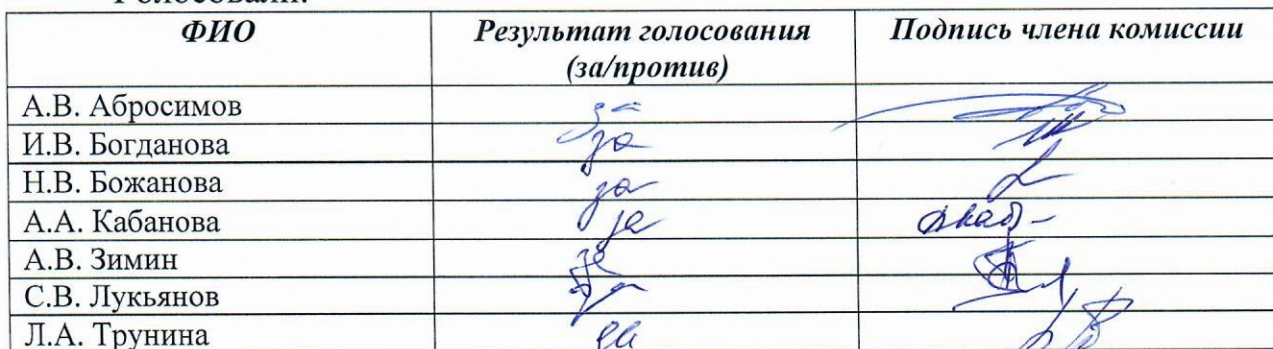 Голосовали:
ФИО Результат голосования Подпись члена комиссии
(за/против)
А.В. Абросимов за
И.В. Богданова за
Н.В. Божанова за
А.А. Кабанова за
А.В. Зимин за
С.В. Лукьянов за
Л.А. Трунина